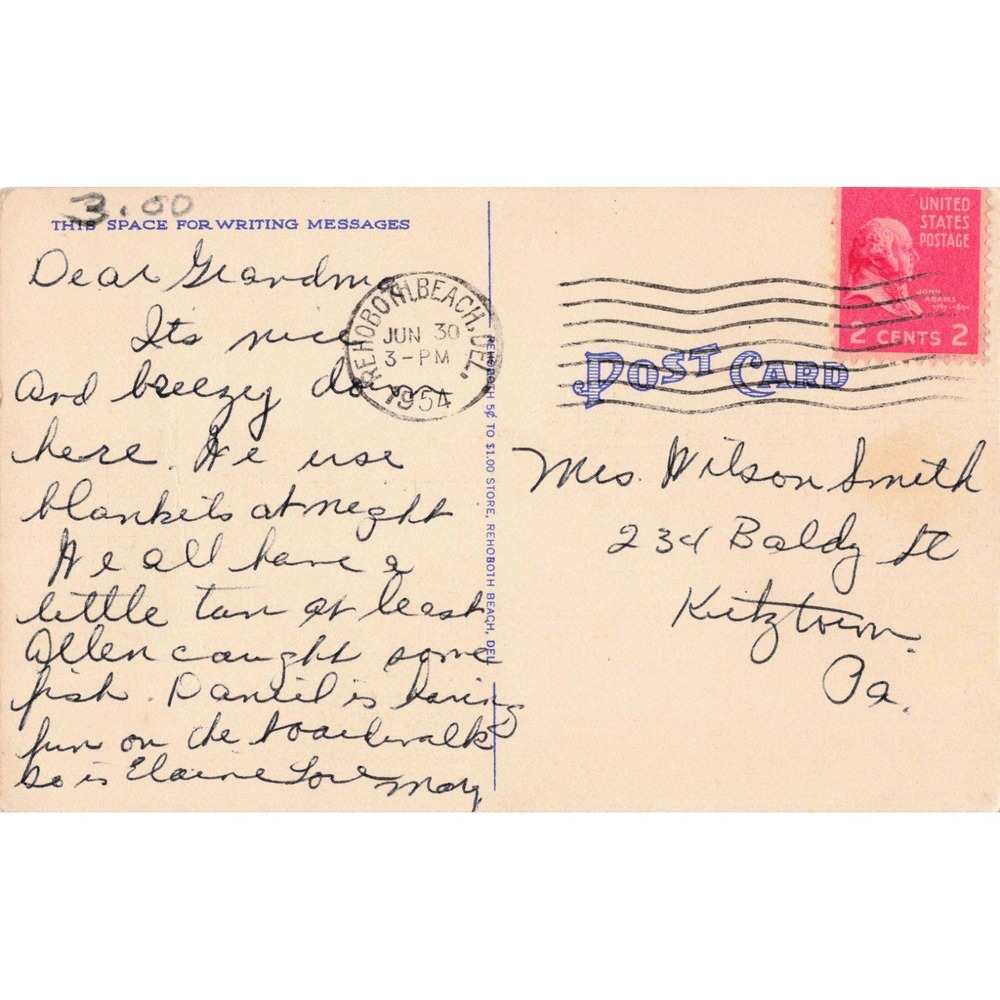 3.00
THIS SPACE FOR WRITING MESSAGES
Dear Grandma
Its nice
and breezey down
here. We use
blankets at night
We all have a
little tan at least
Allen caught some
fish. Daniel is having
fun on the boardwalk
so is Elaine Love Mary
REHOBOTH BEACH, DEL.
JUN 30
3-PM
1954
REHOBOTH 5¢ TO $1.00 STORE, REHOBOTH BEACH, DEL.
UNITED
STATES
POSTAGE
JOHN
ADAMS
1797-1801
2 CENTS 2
POST CARD
Mrs. Wilson Smith
234 Baldy St
Kutztown
Pa.